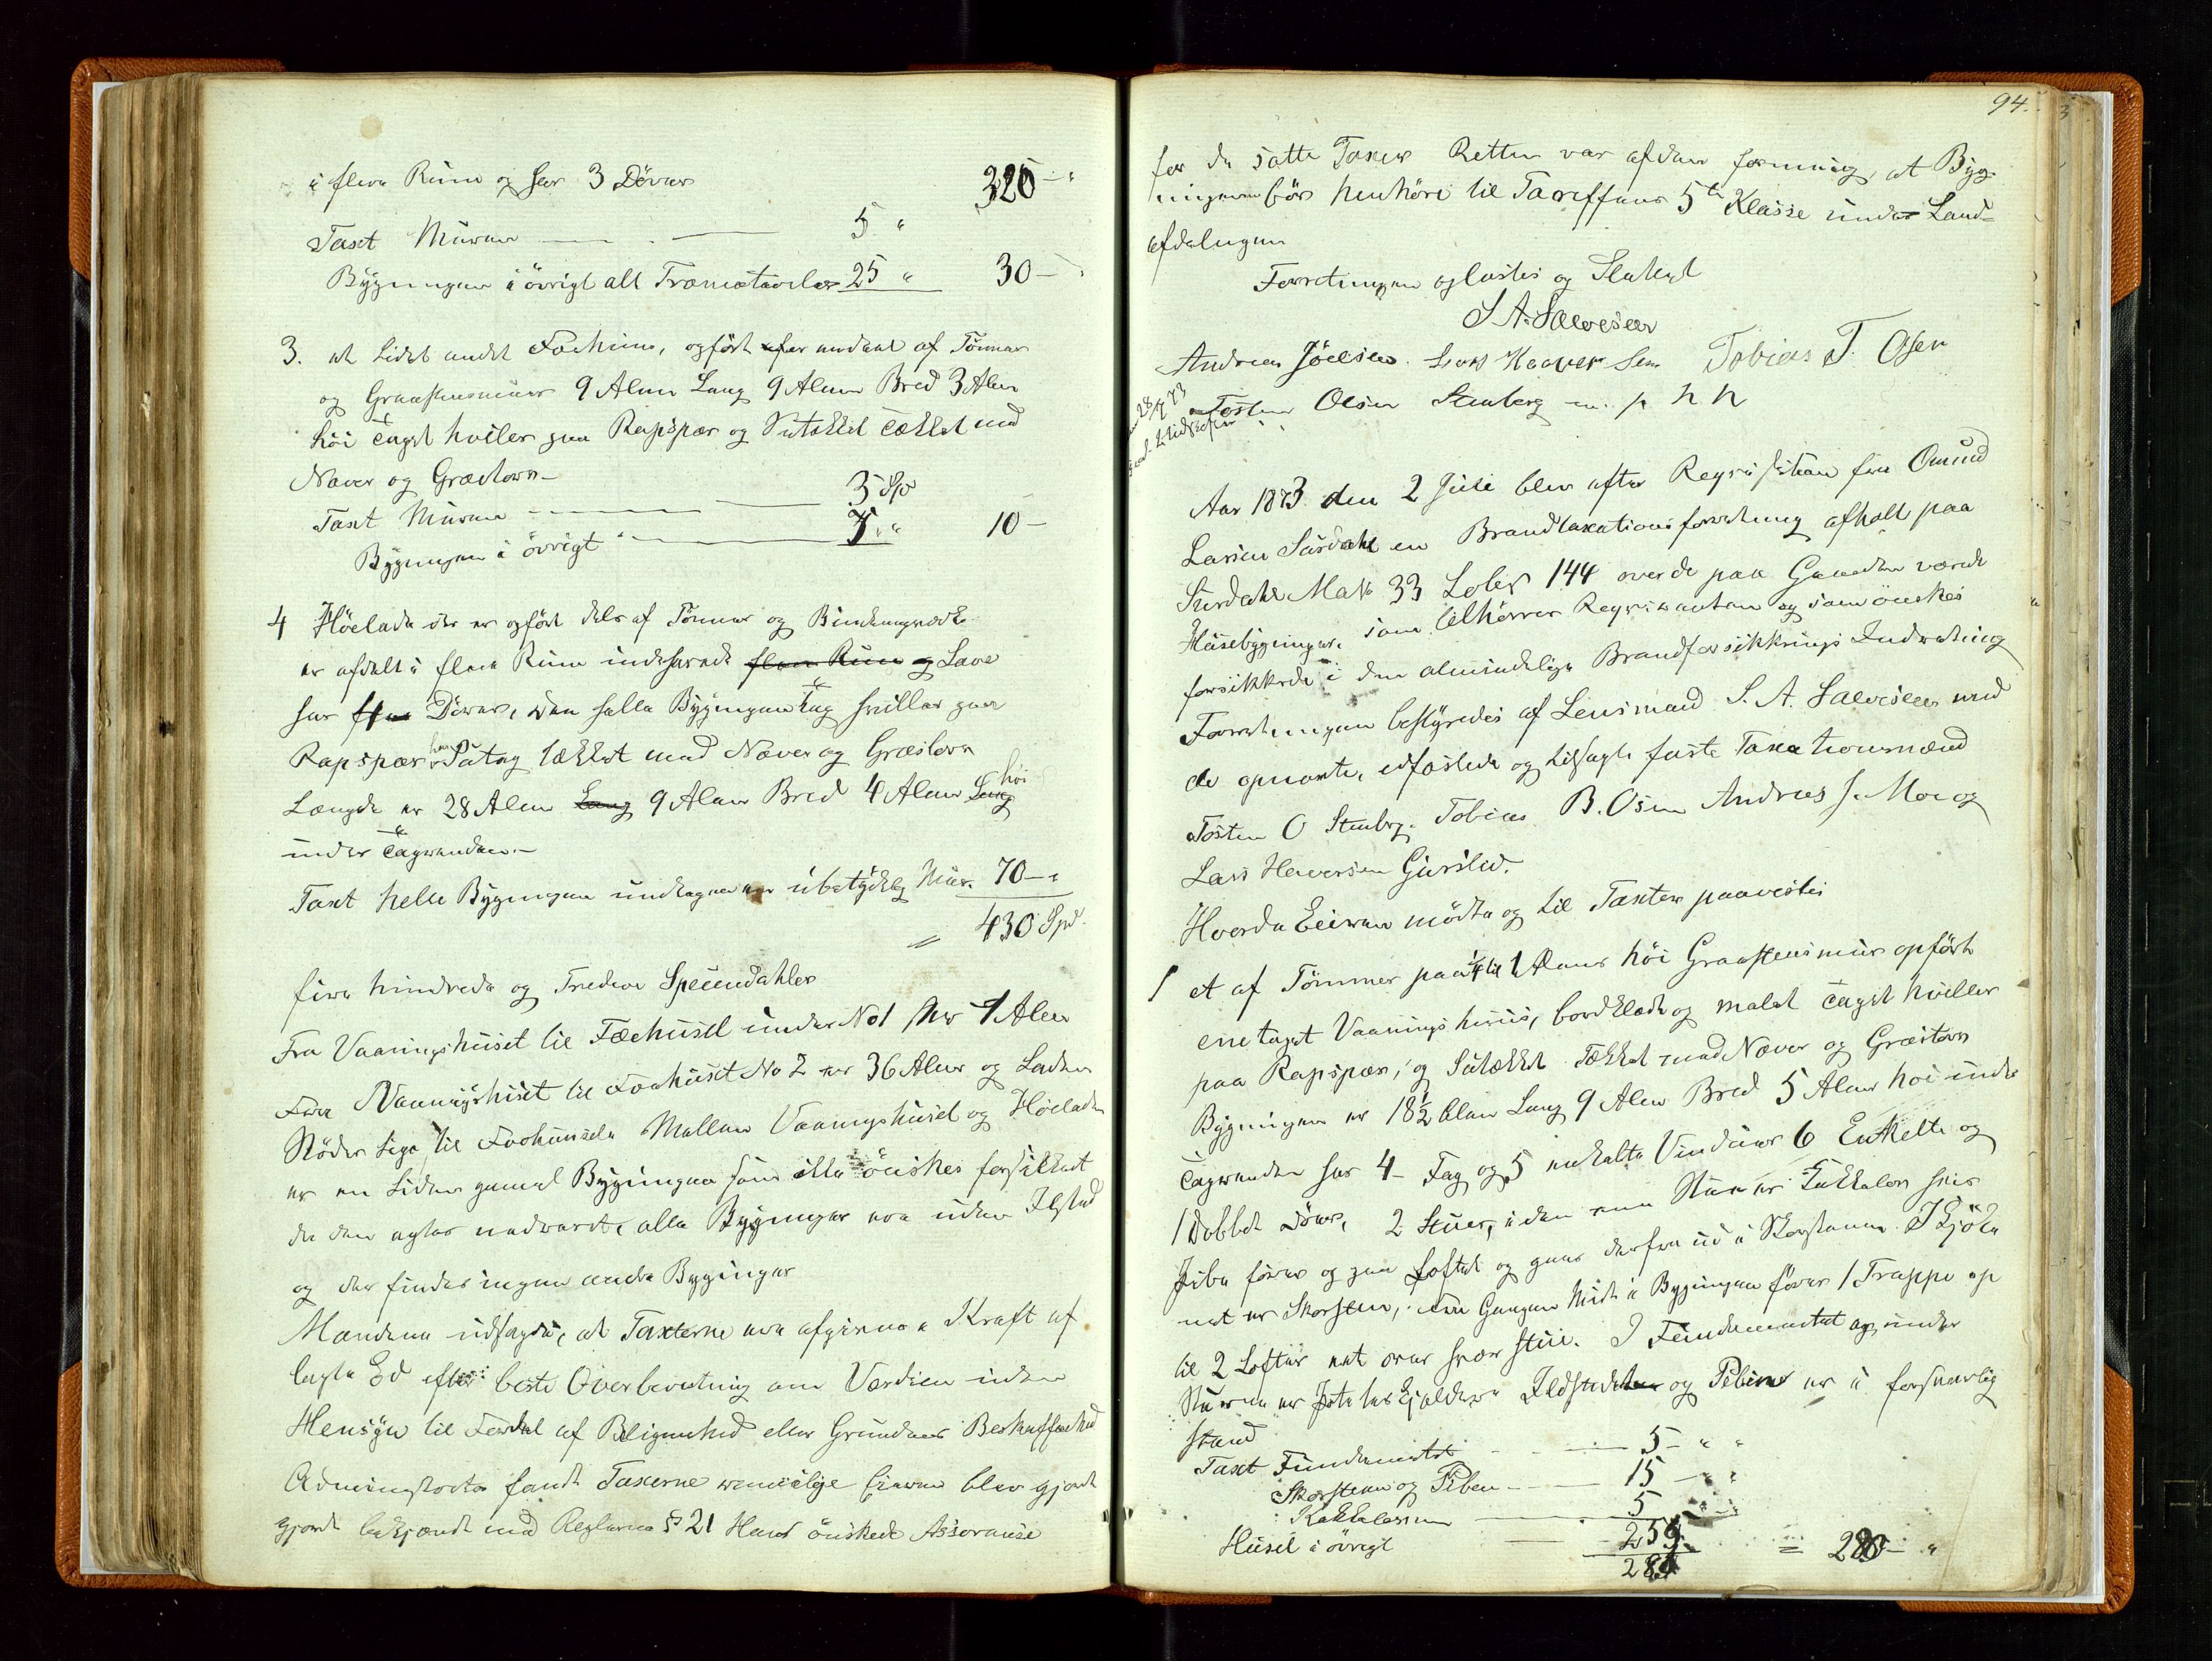 i flere Rum og har 3 Dører 320 - "
Taxt Muren 5 "
Bygningen i øvrigt alt Træmateriale 25 " 30 -
3. et lidet andet Foehuus, opført af Tømmer
og Graastensmuur 9 Alen Lang 9 Alen Bred 3 Alen
höi Taget hviler paa Rapspær og Sutækket Tækket med
Næver og Græstorv -
Taxt Muren 5 Spd
Bygningen i øvrigt 5 " 10 -
4 Höeladen der er opført dels af Tømmer og Bindingsværk
er afdelt i flere Rum indeha­vende Lave
har Dører, den halle Bygningen Tag hviller paa
Rapspær Sutag tækket med Næver og Græstorv
Længde er 28 Alen 9 Alen Bred 4 Alen höi
under Tagranden. -
Taxt helle Bygningen undtagen en ubetydelig Muur. 70 - "
= 430 Spd.
fire hundrede og Tredeve Speciedahler
Fra Vaaningshuset til Fæehuset under No 1 er 7 Alen
Fra Vaaningshuset til Foehuset No 2 er 36 Alen og Laden
Støder lige til Foehuuset Mellem Vaaningshuset og Høeladen
er en liden gamal Bygningen som ikke önskes forsikkret
da den agtes nedrevet, alle Bygninger ere uden Ilsted
og der findes ingen andre Bygninger
Mændene udsagde, at Taxterne ere afgivne i Kraft af
lagte Ed efter beste Overbevisning om Værdien uden
Hensÿn til Fordel af Beligenhed eller Grundens Beskaffenhed
Administrator fandt Taxerne Eieren blev gjort
gjort bekjendt med Reglerne § 21 Hans önskede Assuranse
94.
for de satte Taxer Retten var af den formening, at Byg-
ningerne bör henhöre til Tariffens 5te Klasse under Land-
afdelingen
Forretningen oplæstes og Sluttet
S A. Salvesen
Andreas Jöelsen Lars Haaver Sen Tobias T. Osen
Tosten Olsen Stenberg m. p h. h
28/7 73
Aar 1873 den 2 Juli blev efter Reqvisition fra Omund
Larsen Surdahl en Brandtaxationsforretning afholt paa
Surdahl Mat No 33 Løbe No 144 over de paa Gaarden værende
Husebygninger, som tilhörer Reqvirenten og som önskes
forsikkrede i den almindelige Brandforsikkrings Indretning
Forretningen bestyredes af Lensmand S. A. Salvesen med
de opnævnte, edfæstede og tilsagte faste Taxationsmænd
Tosten O Stenberg. Tobias B. Osen Andreas J. Moe og
Lars Haversen Girslid.
Hvorda Eieren mödte og til Taxter paavistes
1 et af Tömmer paa 1/4 til 1 Alens höi Graastensmuur opfört
enetaget Vaaningshuus, bordklædt og malet Taget hviller
paa Rapspær, og Sutækket Tækket med Næver og Græstorv
Bygningen er 18 1/2 Alen Lang 9 Alen Bred 5 Alen höi under
Tagranden har 4 - Fag og 5 enkelte Vinduer 6 Enkelte og
1 Dobbelt Dører, 2 Stuer, i den ene Stue er Kakkelovn hvis
Pibe förer og paa Loftet og gaar derfra ud i Skorstenen. I Kjøk-
net er Skorsten, fra Gangen Midt i Bygningen förer 1 Trappe op
til 2 Lofter et over hver stue. I Fundamentet og under
Stuerne er Kjelder Ildstederne og Piberne er i forsvarlig
stand
Taxt Fundamentet 5 - " "
Skorsten og Piben 15 - " "
Kakkelovnen 5 - " "
Huset i övrigt 255
280 = 280 - "